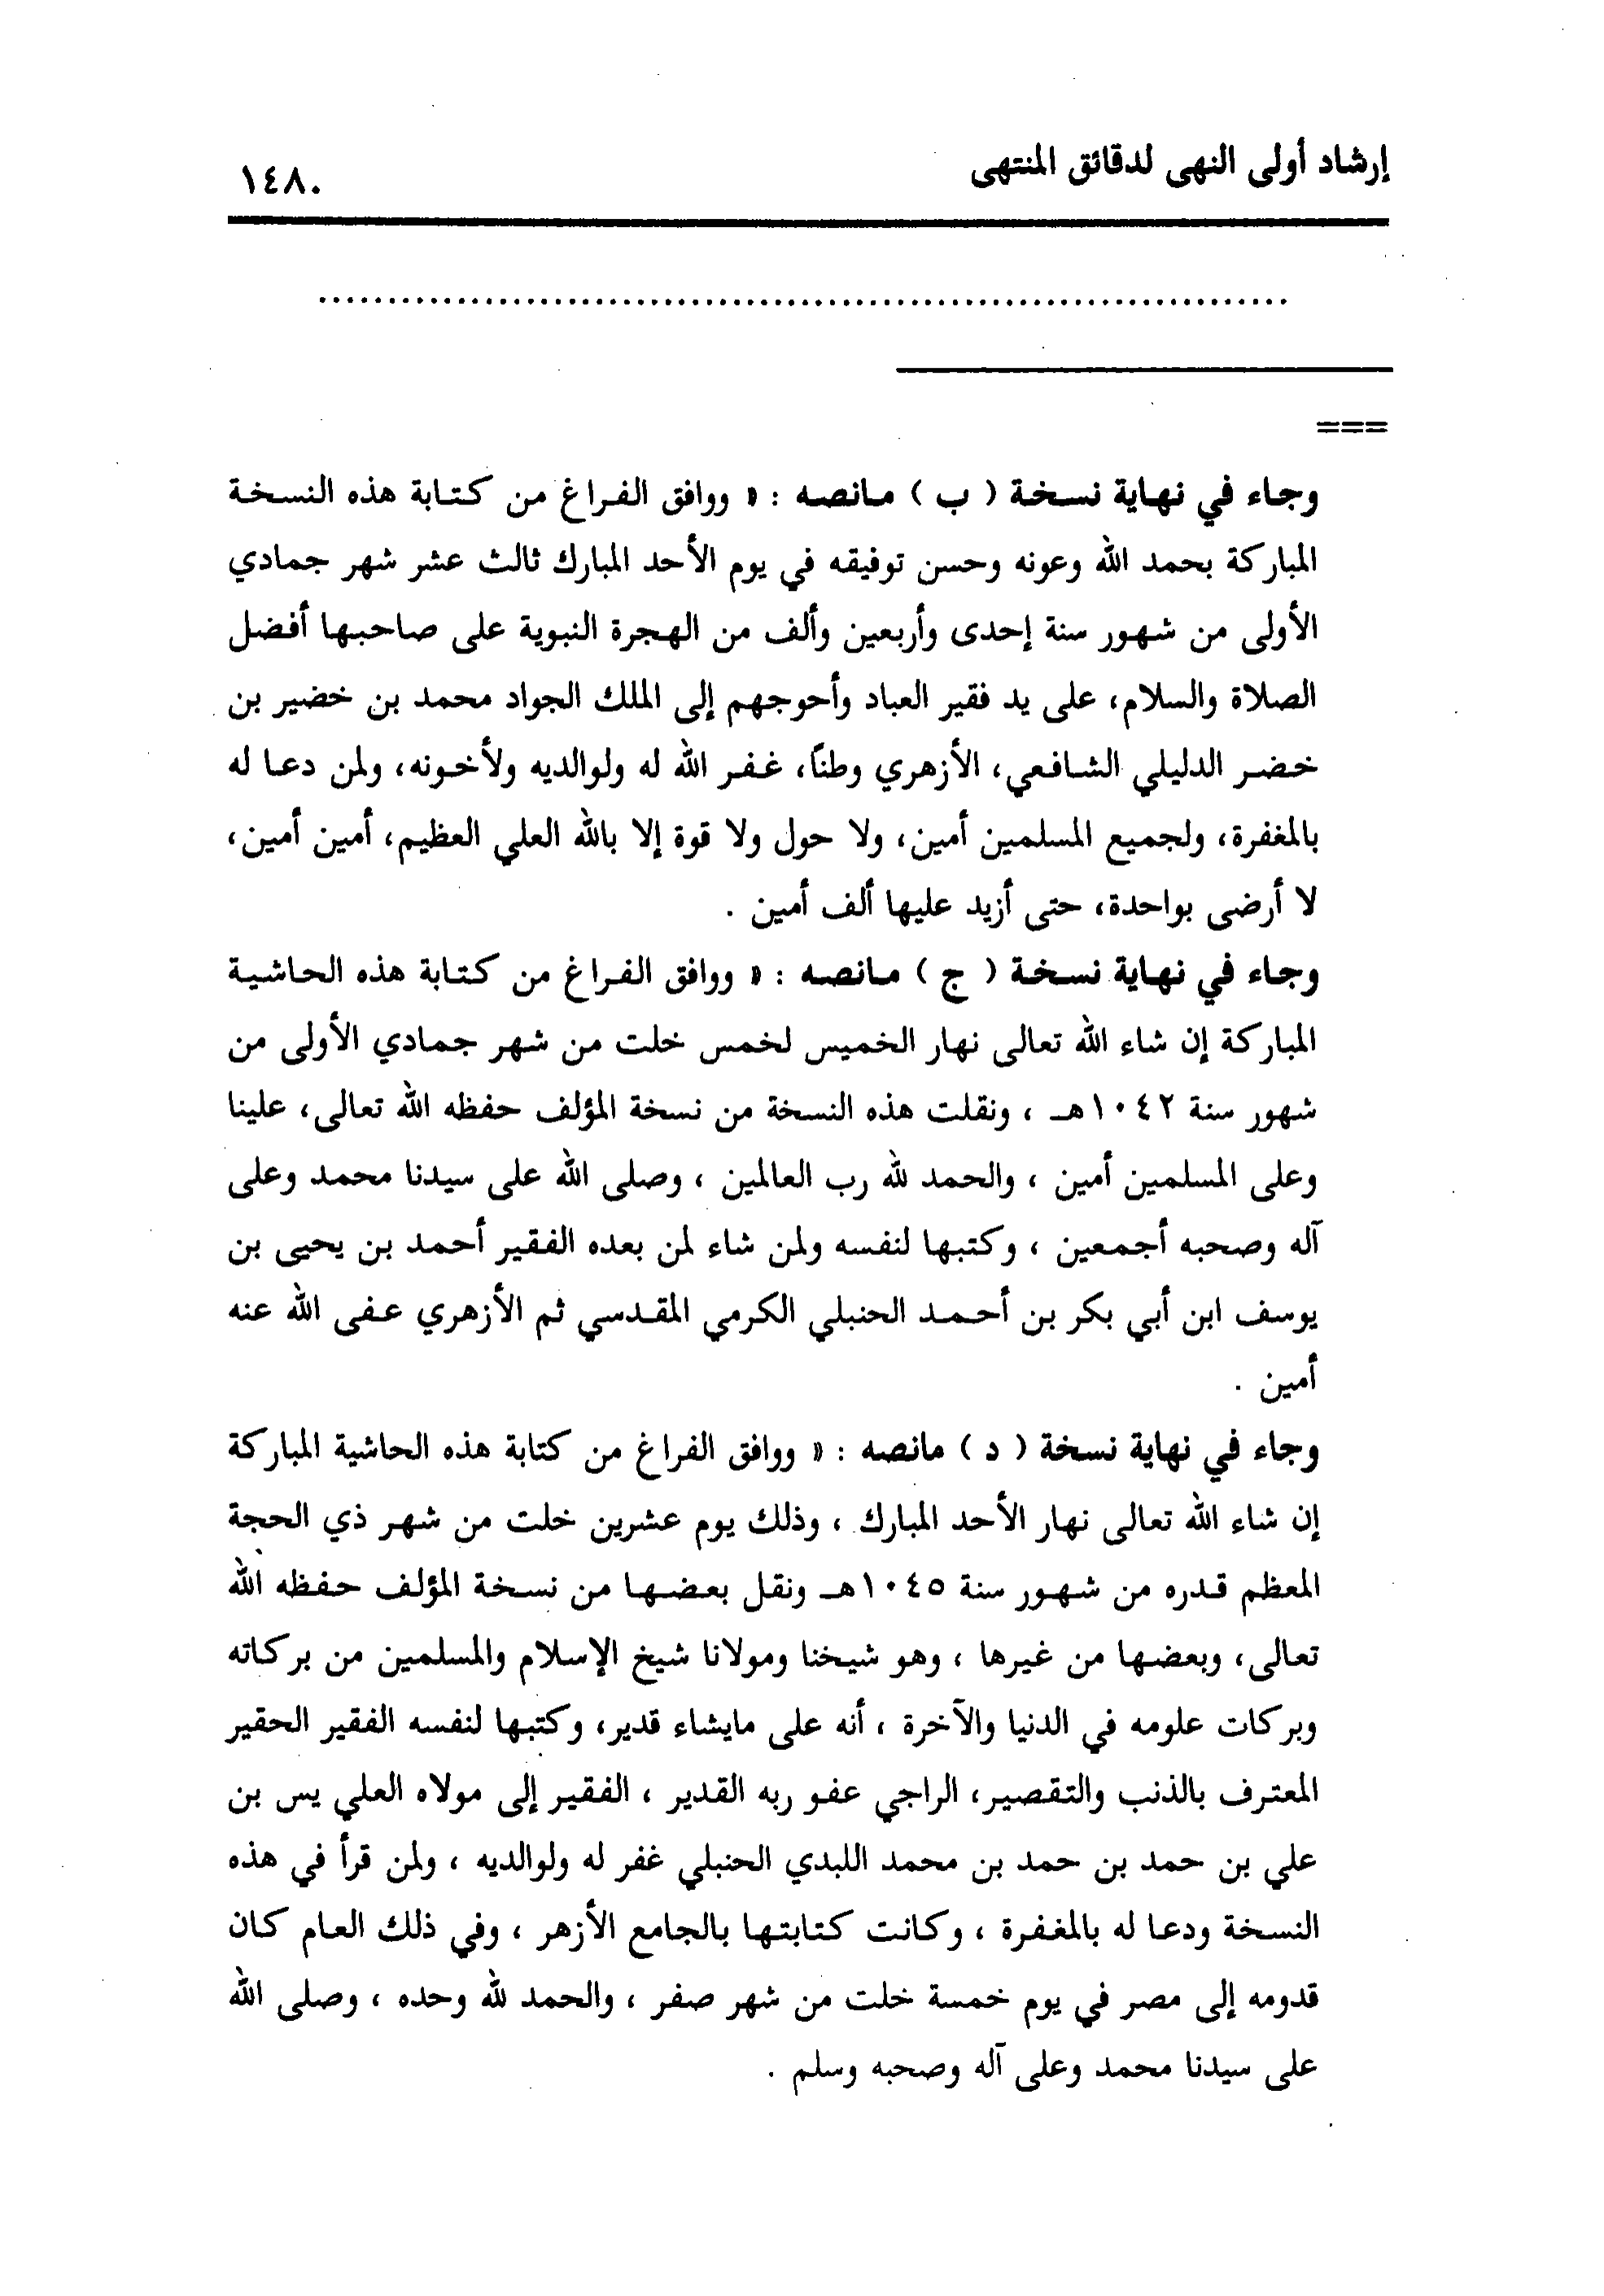 إرشاد أولى النهى لدقائق المنتهى
١٤٨٠
................................................................
===
وجاء في نهاية نسخة ( ب ) مانصه : « ووافق الفراغ من كتابة هذه النسخة
المباركة بحمد الله وعونه وحسن توفيقه في يوم الأحد المبارك ثالث عشر شهر جمادي
الأولى من شهور سنة إحدى وأربعين وألف من الهجرة النبوية على صاحبها أفضل
الصلاة والسلام، على يد فقير العباد وأحوجهم إلى الملك الجواد محمد بن خضير بن
خضر الدليلي الشافعي، الأزهري وطنًا، غفر الله له ولوالديه ولأخونه، ولمن دعا له
بالمغفرة، ولجميع المسلمين أمين، ولا حول ولا قوة إلا بالله العلي العظيم، أمين أمين،
لا أرضى بواحدة، حتى أزيد عليها ألف أمين .
وجاء في نهاية نسخة ( ج ) مانصه : « ووافق الفراغ من كتابة هذه الحاشية
المباركة إن شاء الله تعالى نهار الخميس لخمس خلت من شهر جمادي الأولى من
شهور سنة ١٠٤٢هـ ، ونقلت هذه النسخة من نسخة المؤلف حفظه الله تعالى، علينا
وعلى المسلمين أمين ، والحمد لله رب العالمين ، وصلى الله على سيدنا محمد وعلى
آله وصحبه أجمعين ، وكتبها لنفسه ولمن شاء لمن بعده الفقير أحمد بن يحيى بن
يوسف ابن أبي بكر بن أحمد الحنبلي الكرمي المقدسي ثم الأزهري عفى الله عنه
أمين .
وجاء في نهاية نسخة ( د ) مانصه : « ووافق الفراغ من كتابة هذه الحاشية المباركة
إن شاء الله تعالى نهار الأحد المبارك ، وذلك يوم عشرين خلت من شهر ذي الحجة
المعظم قدره من شهور سنة ١٠٤٥هـ ونقل بعضها من نسخة المؤلف حفظه الله
تعالى، وبعضها من غيرها ، وهو شيخنا ومولانا شيخ الإسلام والمسلمين من بركاته
وبركات علومه في الدنيا والآخرة ، أنه على مايشاء قدير، وكتبها لنفسه الفقير الحقير
المعترف بالذنب والتقصير، الراجي عفو ربه القدير ، الفقير إلى مولاه العلي يس بن
علي بن حمد بن حمد بن محمد اللبدي الحنبلي غفر له ولوالديه ، ولمن قرأ في هذه
النسخة ودعا له بالمغفرة ، وكانت كتابتها بالجامع الأزهر ، وفي ذلك العام كان
قدومه إلى مصر في يوم خمسة خلت من شهر صفر ، والحمد لله وحده ، وصلى الله
على سيدنا محمد وعلى آله وصحبه وسلم .